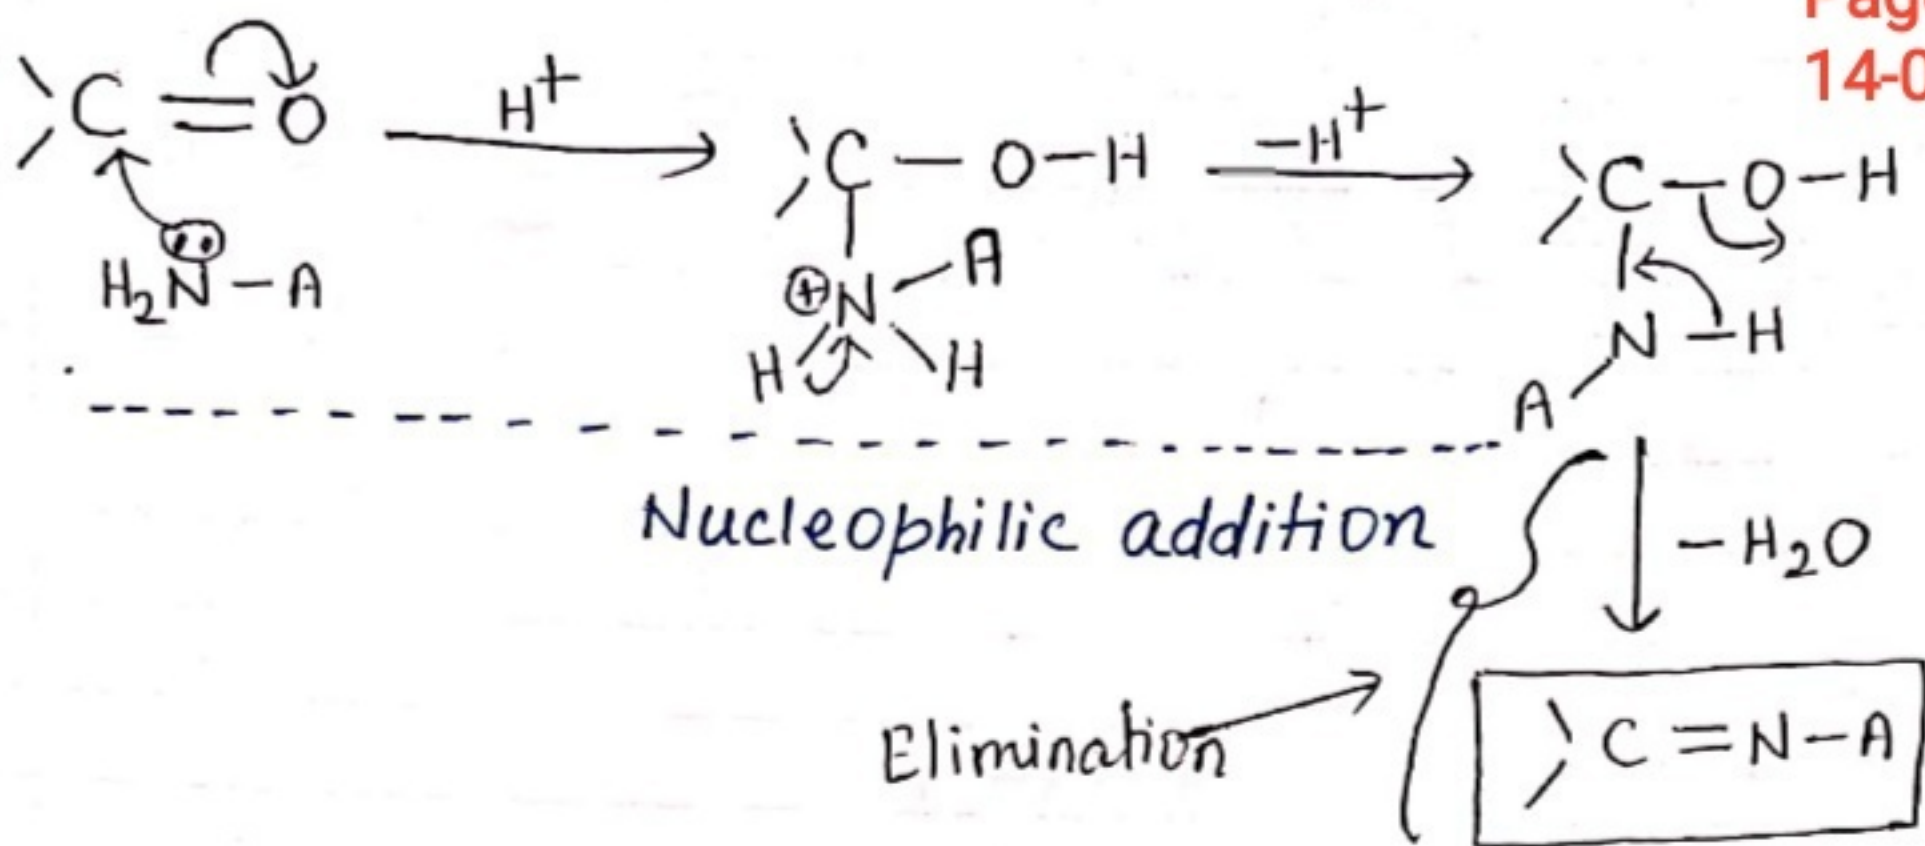 Pag
14-0
C = O
H⁺
C - O - H
-H⁺
C - O - H
H₂N̈ - A
⊕N - A
H H
N - H
A
Nucleophilic addition
- H₂O
Elimination
C = N - A